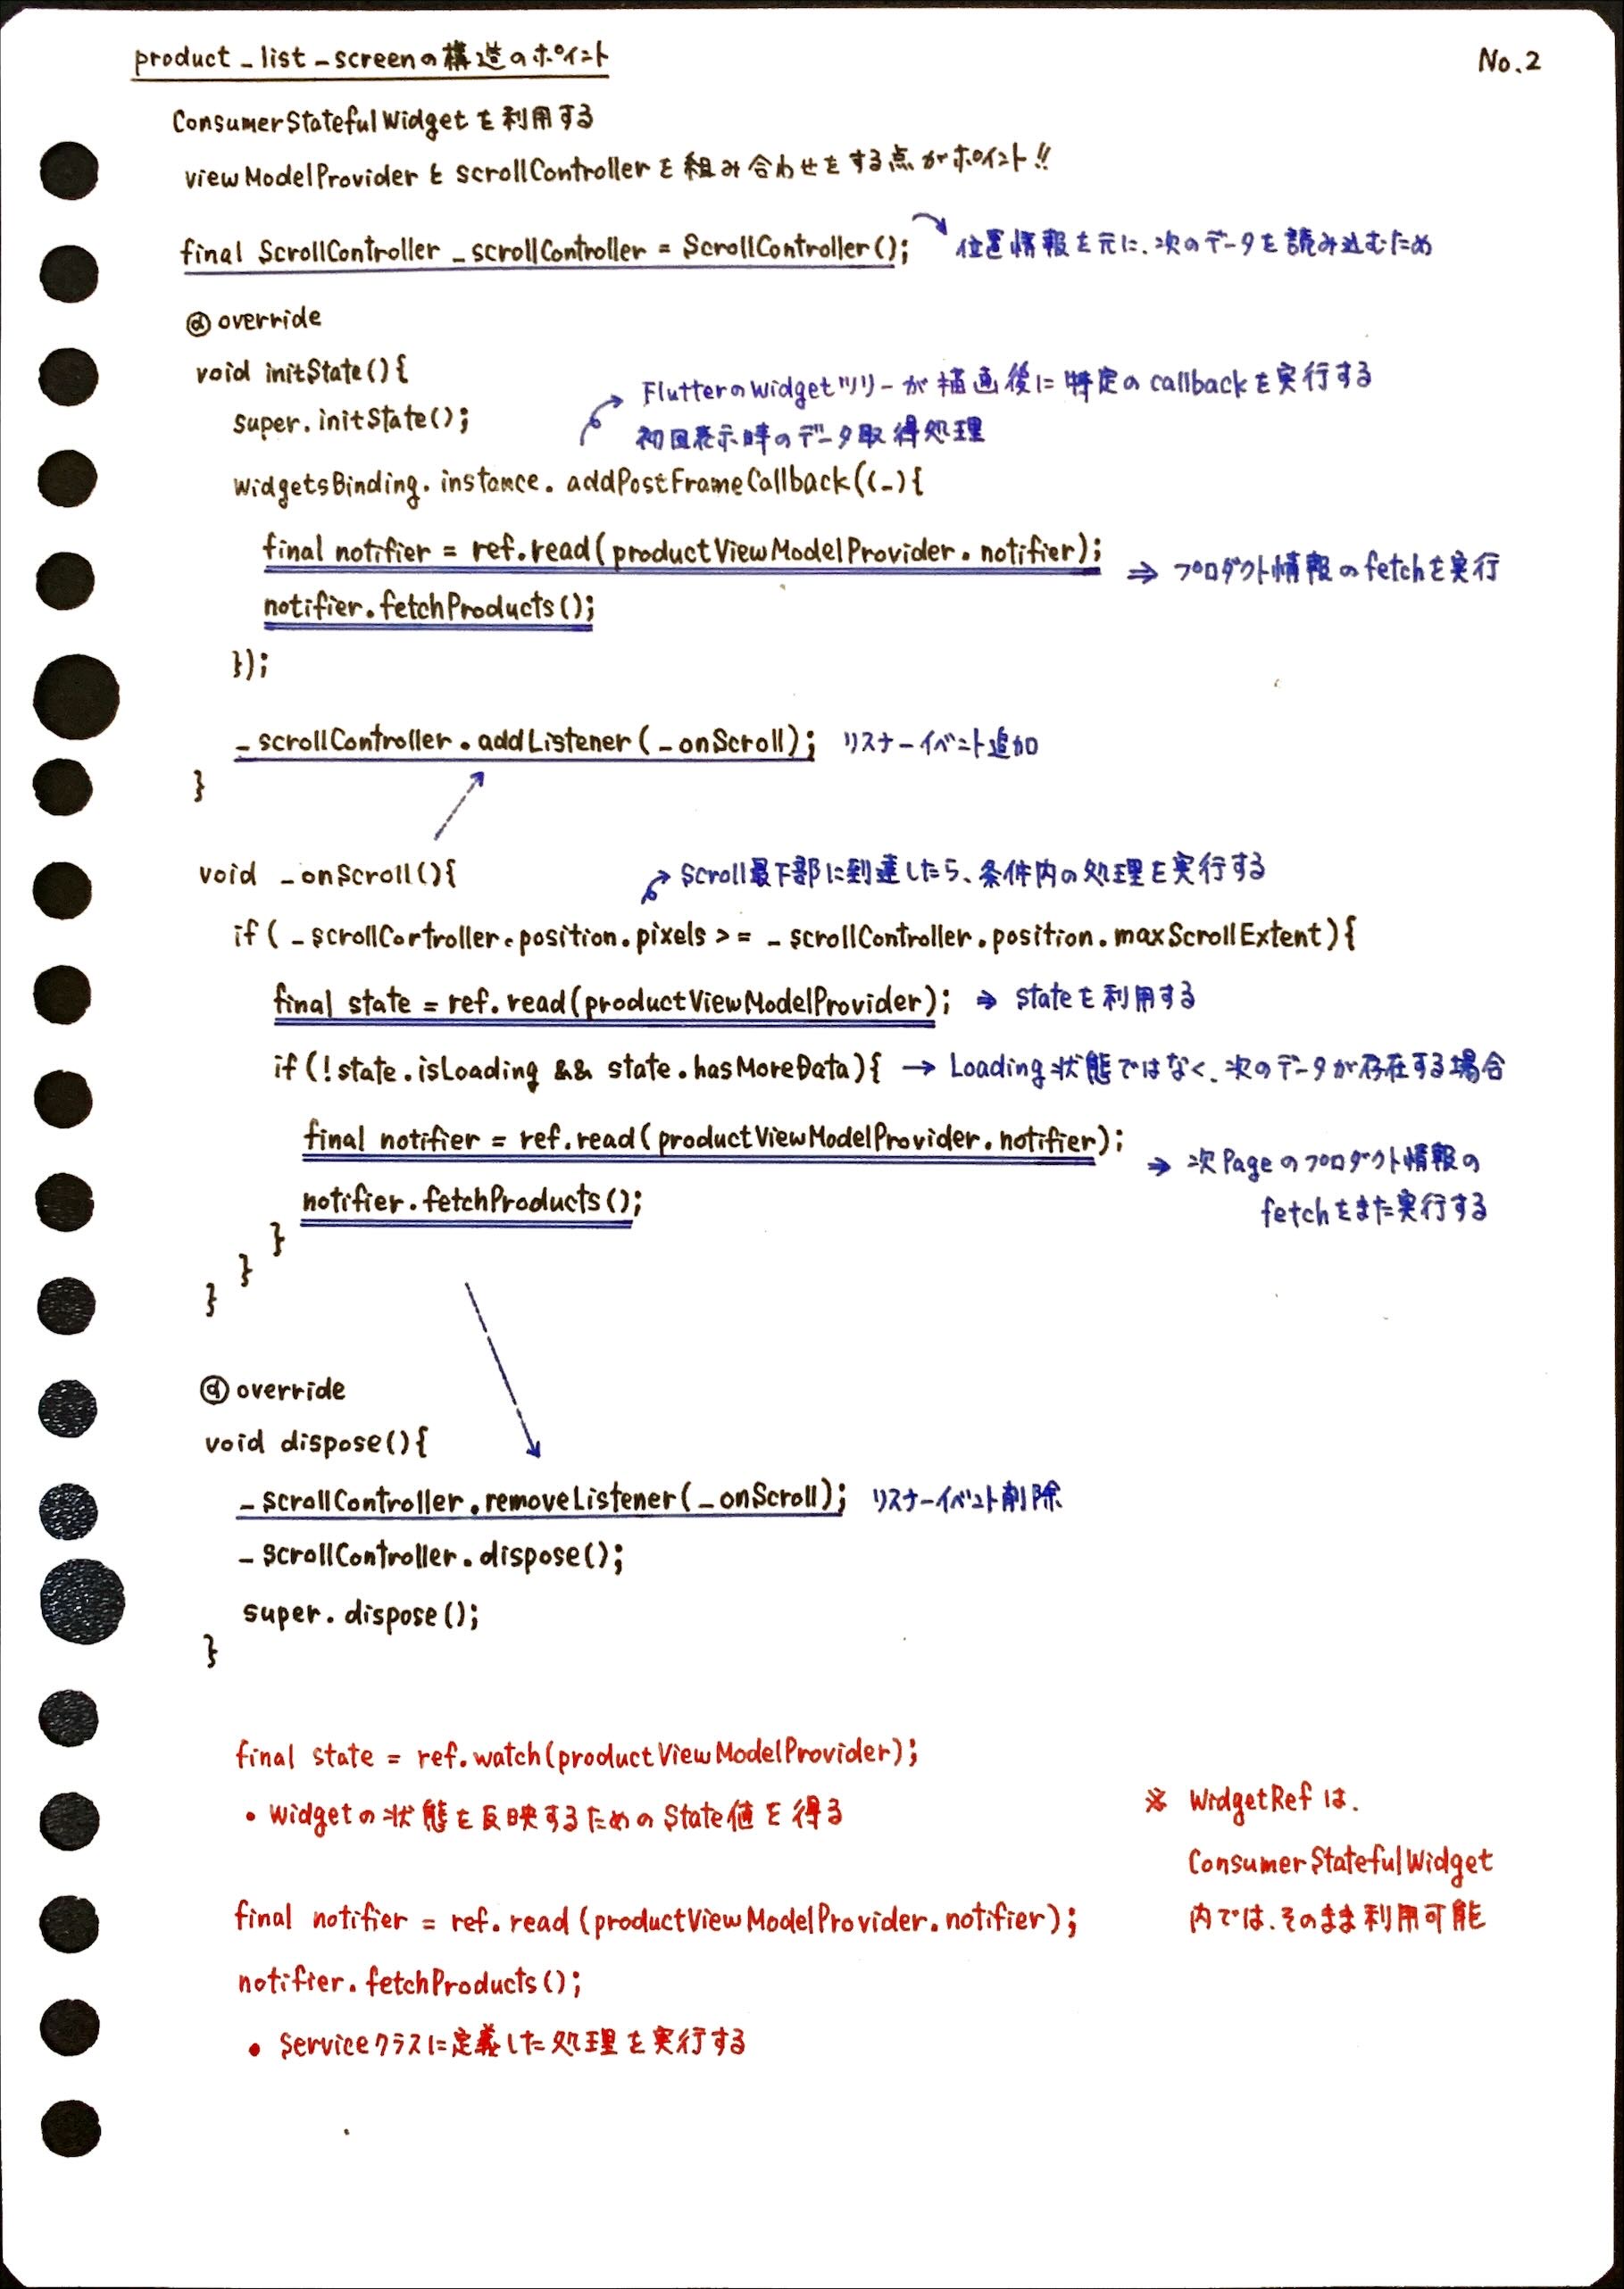 product_list_screenの構造のポイント
No.2
ConsumerStatefulWidgetを利用する
viewModelProviderとscrollControllerを組み合わせをする点がポイント!!
final ScrollController _scrollController = ScrollController();
位置情報を元に、次のデータを読み込むため
@override
void initState(){
super.initState();
FlutterのWidgetツリーが描画後に特定のcallbackを実行する
初回表示時のデータ取得処理
WidgetsBinding.instance.addPostFrameCallback((_){
final notifier = ref.read(productViewModelProvider.notifier);
⇒ プロダクト情報のfetchを実行
notifier.fetchProducts();
});
_scrollController.addListener(_onScroll); リスナーイベント追加
}
void _onScroll(){
Scroll最下部に到達したら、条件内の処理を実行する
if(_scrollController.position.pixels >= _scrollController.position.maxScrollExtent){
final state = ref.read(productViewModelProvider); ⇒ stateを利用する
if(!state.isLoading && state.hasMoreData){ → Loading状態ではなく、次のデータが存在する場合
final notifier = ref.read(productViewModelProvider.notifier);
⇒ 次Pageのプロダクト情報の
notifier.fetchProducts();
fetchをまた実行する
}
}
}
@override
void dispose(){
_scrollController.removeListener(_onScroll); リスナーイベント削除
_scrollController.dispose();
super.dispose();
}
final state = ref.watch(productViewModelProvider);
• Widgetの状態を反映するためのState値を得る
※ WidgetRefは、
ConsumerStatefulWidget
内では、そのまま利用可能
final notifier = ref.read(productViewModelProvider.notifier);
notifier.fetchProducts();
• Serviceクラスに定義した処理を実行する